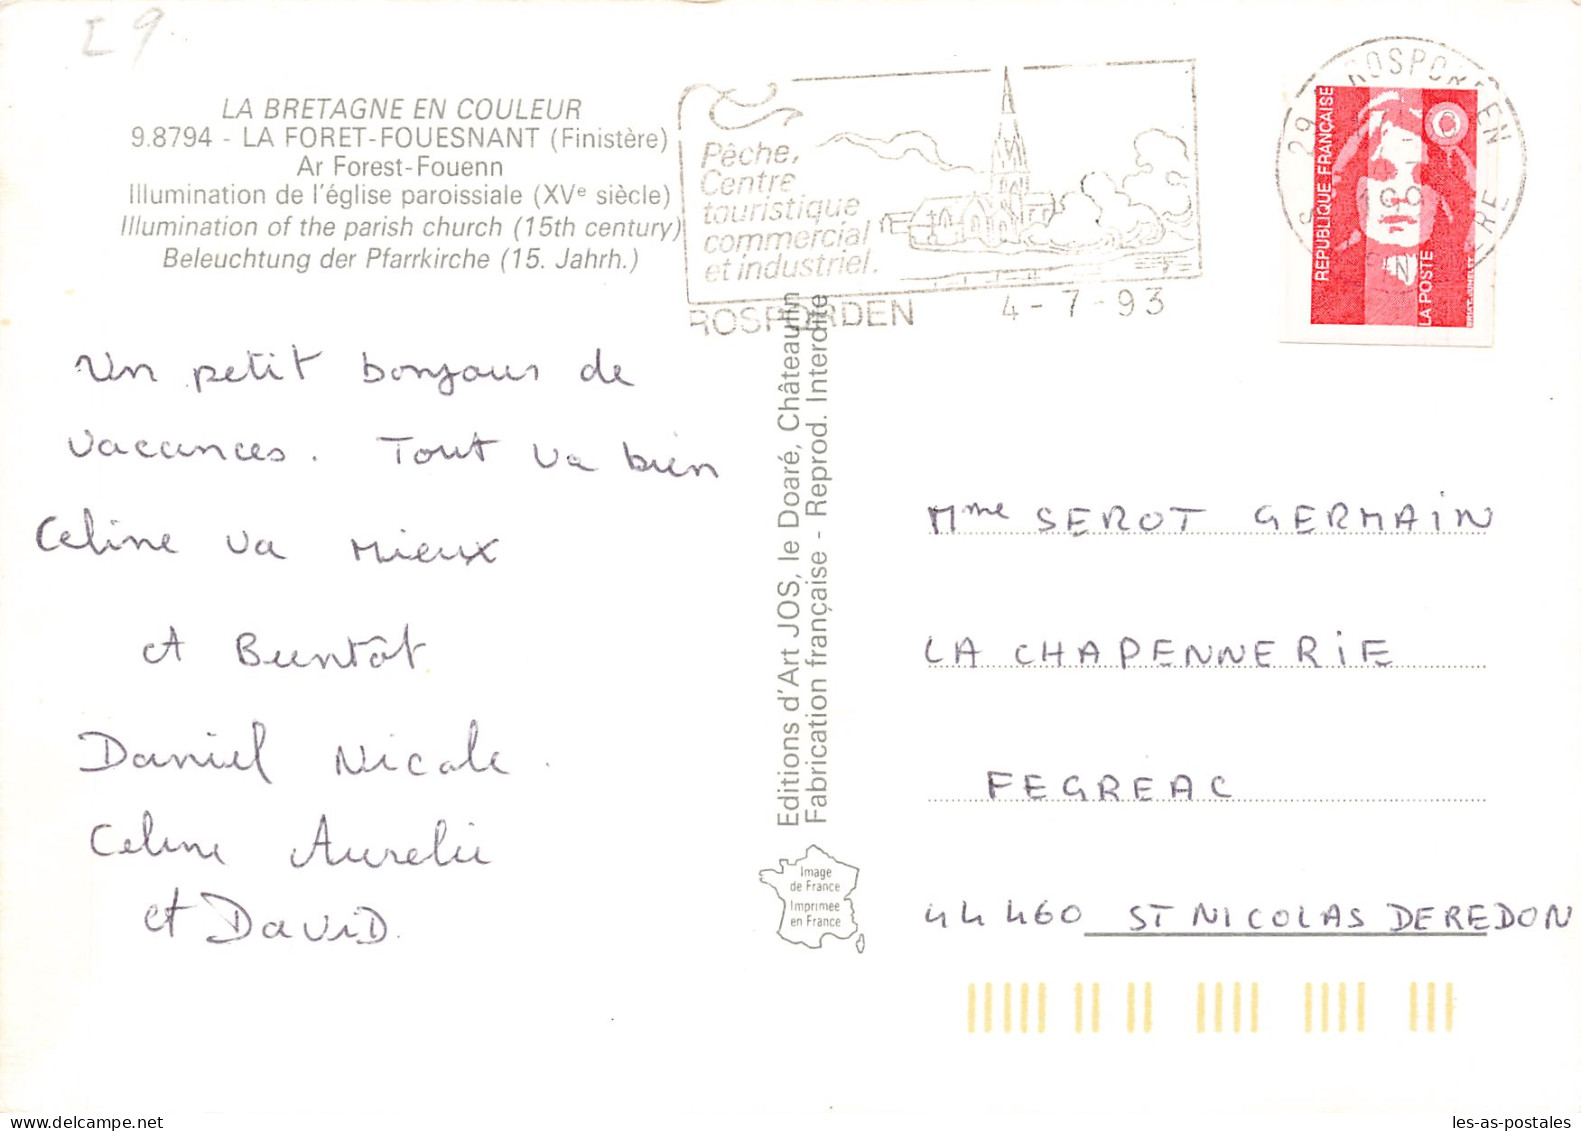 I 9
LA BRETAGNE EN COULEUR
9.8794 - LA FORET-FOUESNANT (Finistère)
Ar Forest-Fouenn
Illumination de l'église paroissiale (XVe siècle)
Illumination of the parish church (15th century)
Beleuchtung der Pfarrkirche (15. Jahrh.)
Pêche,
Centre
touristique
commercial
et industriel.
ROSPORDEN 4-7-93
29 ROSPORDEN
REPUBLIQUE FRANÇAISE
LA POSTE
Un petit bonjour de
vacances. Tout va bien
Celine va mieux
A Bientôt
Daniel Nicole.
Celine Aurelie
et DAVID.
Editions d'Art JOS, le Doaré, Châteaulin
Fabrication française - Reprod. Interdite
Image
de France
Imprimée
en France
Mme SEROT GERMAIN
LA CHAPENNERIE
FEGREAC
44460 ST NICOLAS DE REDON
les-as-postales